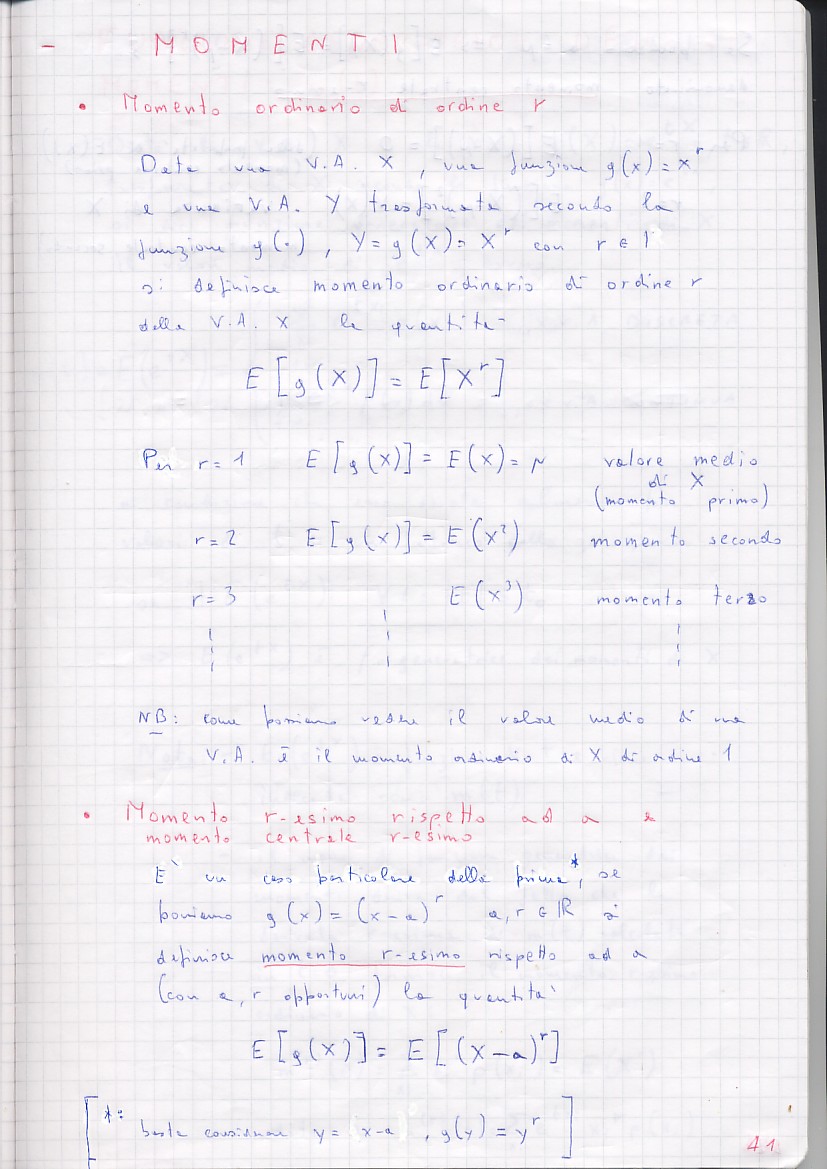 - MOMENTI
• Momento ordinario di ordine r
Data una V.A. X , una funzione g(x) = x^r
e una V.A. Y trasformata secondo la
funzione g(·) , Y = g(X) = X^r con r ∈
si definisce momento ordinario di ordine r
della V.A. X la quantità
E[g(X)] = E[X^r]
Per r = 1 E[g(X)] = E(X) = μ valore medio
di X
(momento primo)
r = 2 E[g(X)] = E(X²) momento secondo
r = 3 E(X³) momento terzo
NB: come possiamo vedere il valore medio di una
V.A. è il momento ordinario di X di ordine 1
• Momento r-esimo rispetto ad a e
momento centrale r-esimo
E` un caso particolare della prima*, se
poniamo g(x) = (x-a)^r a, r ∈ ℝ si
definisce momento r-esimo rispetto ad a
(con a, r opportuni) la quantità
E[g(X)] = E[(X-a)^r]
[*: basta considerare y = x-a , g(y) = y^r]
41